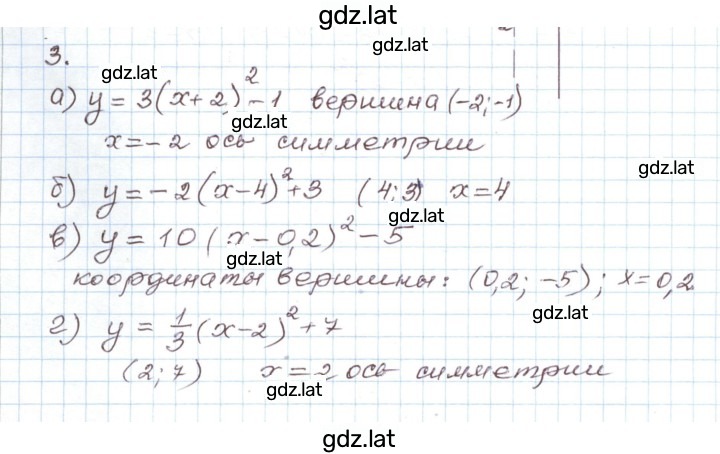 gdz.lat
3.
gdz.lat
gdz.lat
а) y = 3(x+2)² - 1 вершина (-2; -1)
gdz.lat
x = -2 ось симметрии
gdz.lat
б) y = -2(x-4)² + 3 (4; 3) x = 4
gdz.lat
в) y = 10(x-0,2)² - 5
gdz.lat
координаты вершины: (0,2; -5); x = 0,2
gdz.lat
г) y = 1/3 (x-2)² + 7
(2; 7) x = 2 ось симметрии
gdz.lat
gdz.lat